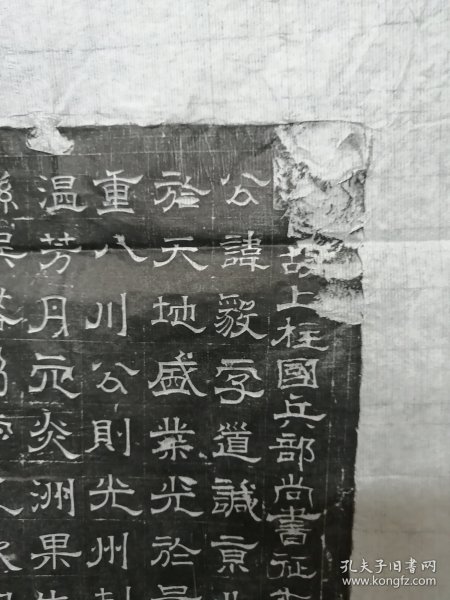 故上柱國兵部尚書征
公諱毅字道誠京
於天地盛業光於
重八川公則光州刺
温芳月宂炎洲果
孫吳
孔夫子旧书网
www.kongfz.com